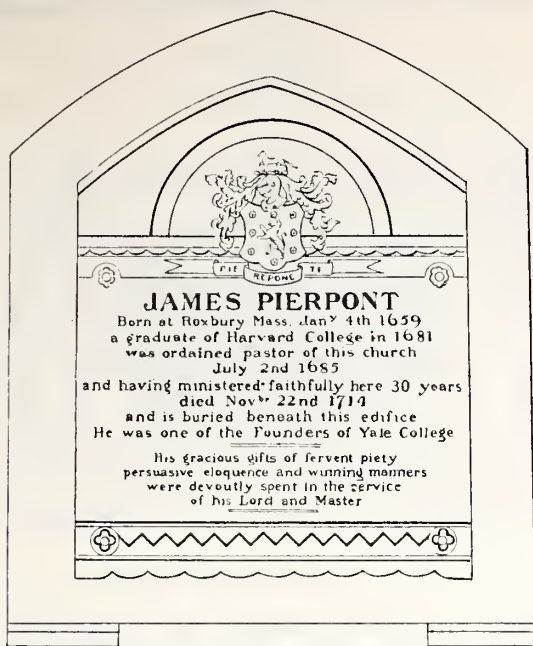 PIE REPONE TE
JAMES PIERPONT
Born at Roxbury Mass. Janʸ 4th 1659
a graduate of Harvard College in 1681
was ordained pastor of this church
July 2nd 1685
and having ministered faithfully here 30 years
died Novᵇʳ 22nd 1714
and is buried beneath this edifice
He was one of the Founders of Yale College
His gracious gifts of fervent piety
persuasive eloquence and winning manners
were devoutly spent in the service
of his Lord and Master